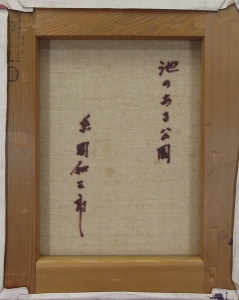 池のある公園
糸園和三郎